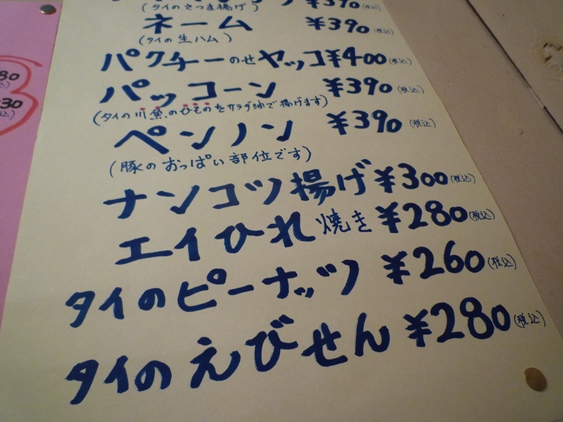 (タイのさつま揚げ) ¥390(税込)
ネーム ¥390(税込)
(タイの生ハム)
パクチーのせヤッコ¥400(税込)
パッコーン ¥390(税込)
(タイの川魚のひものをサラダ油で揚げます)
ペンノン ¥390(税込)
(豚のおっぱい部位です)
ナンコツ揚げ¥300(税込)
エイひれ焼き¥280(税込)
タイのピーナッツ ¥260(税込)
タイのえびせん ¥280(税込)